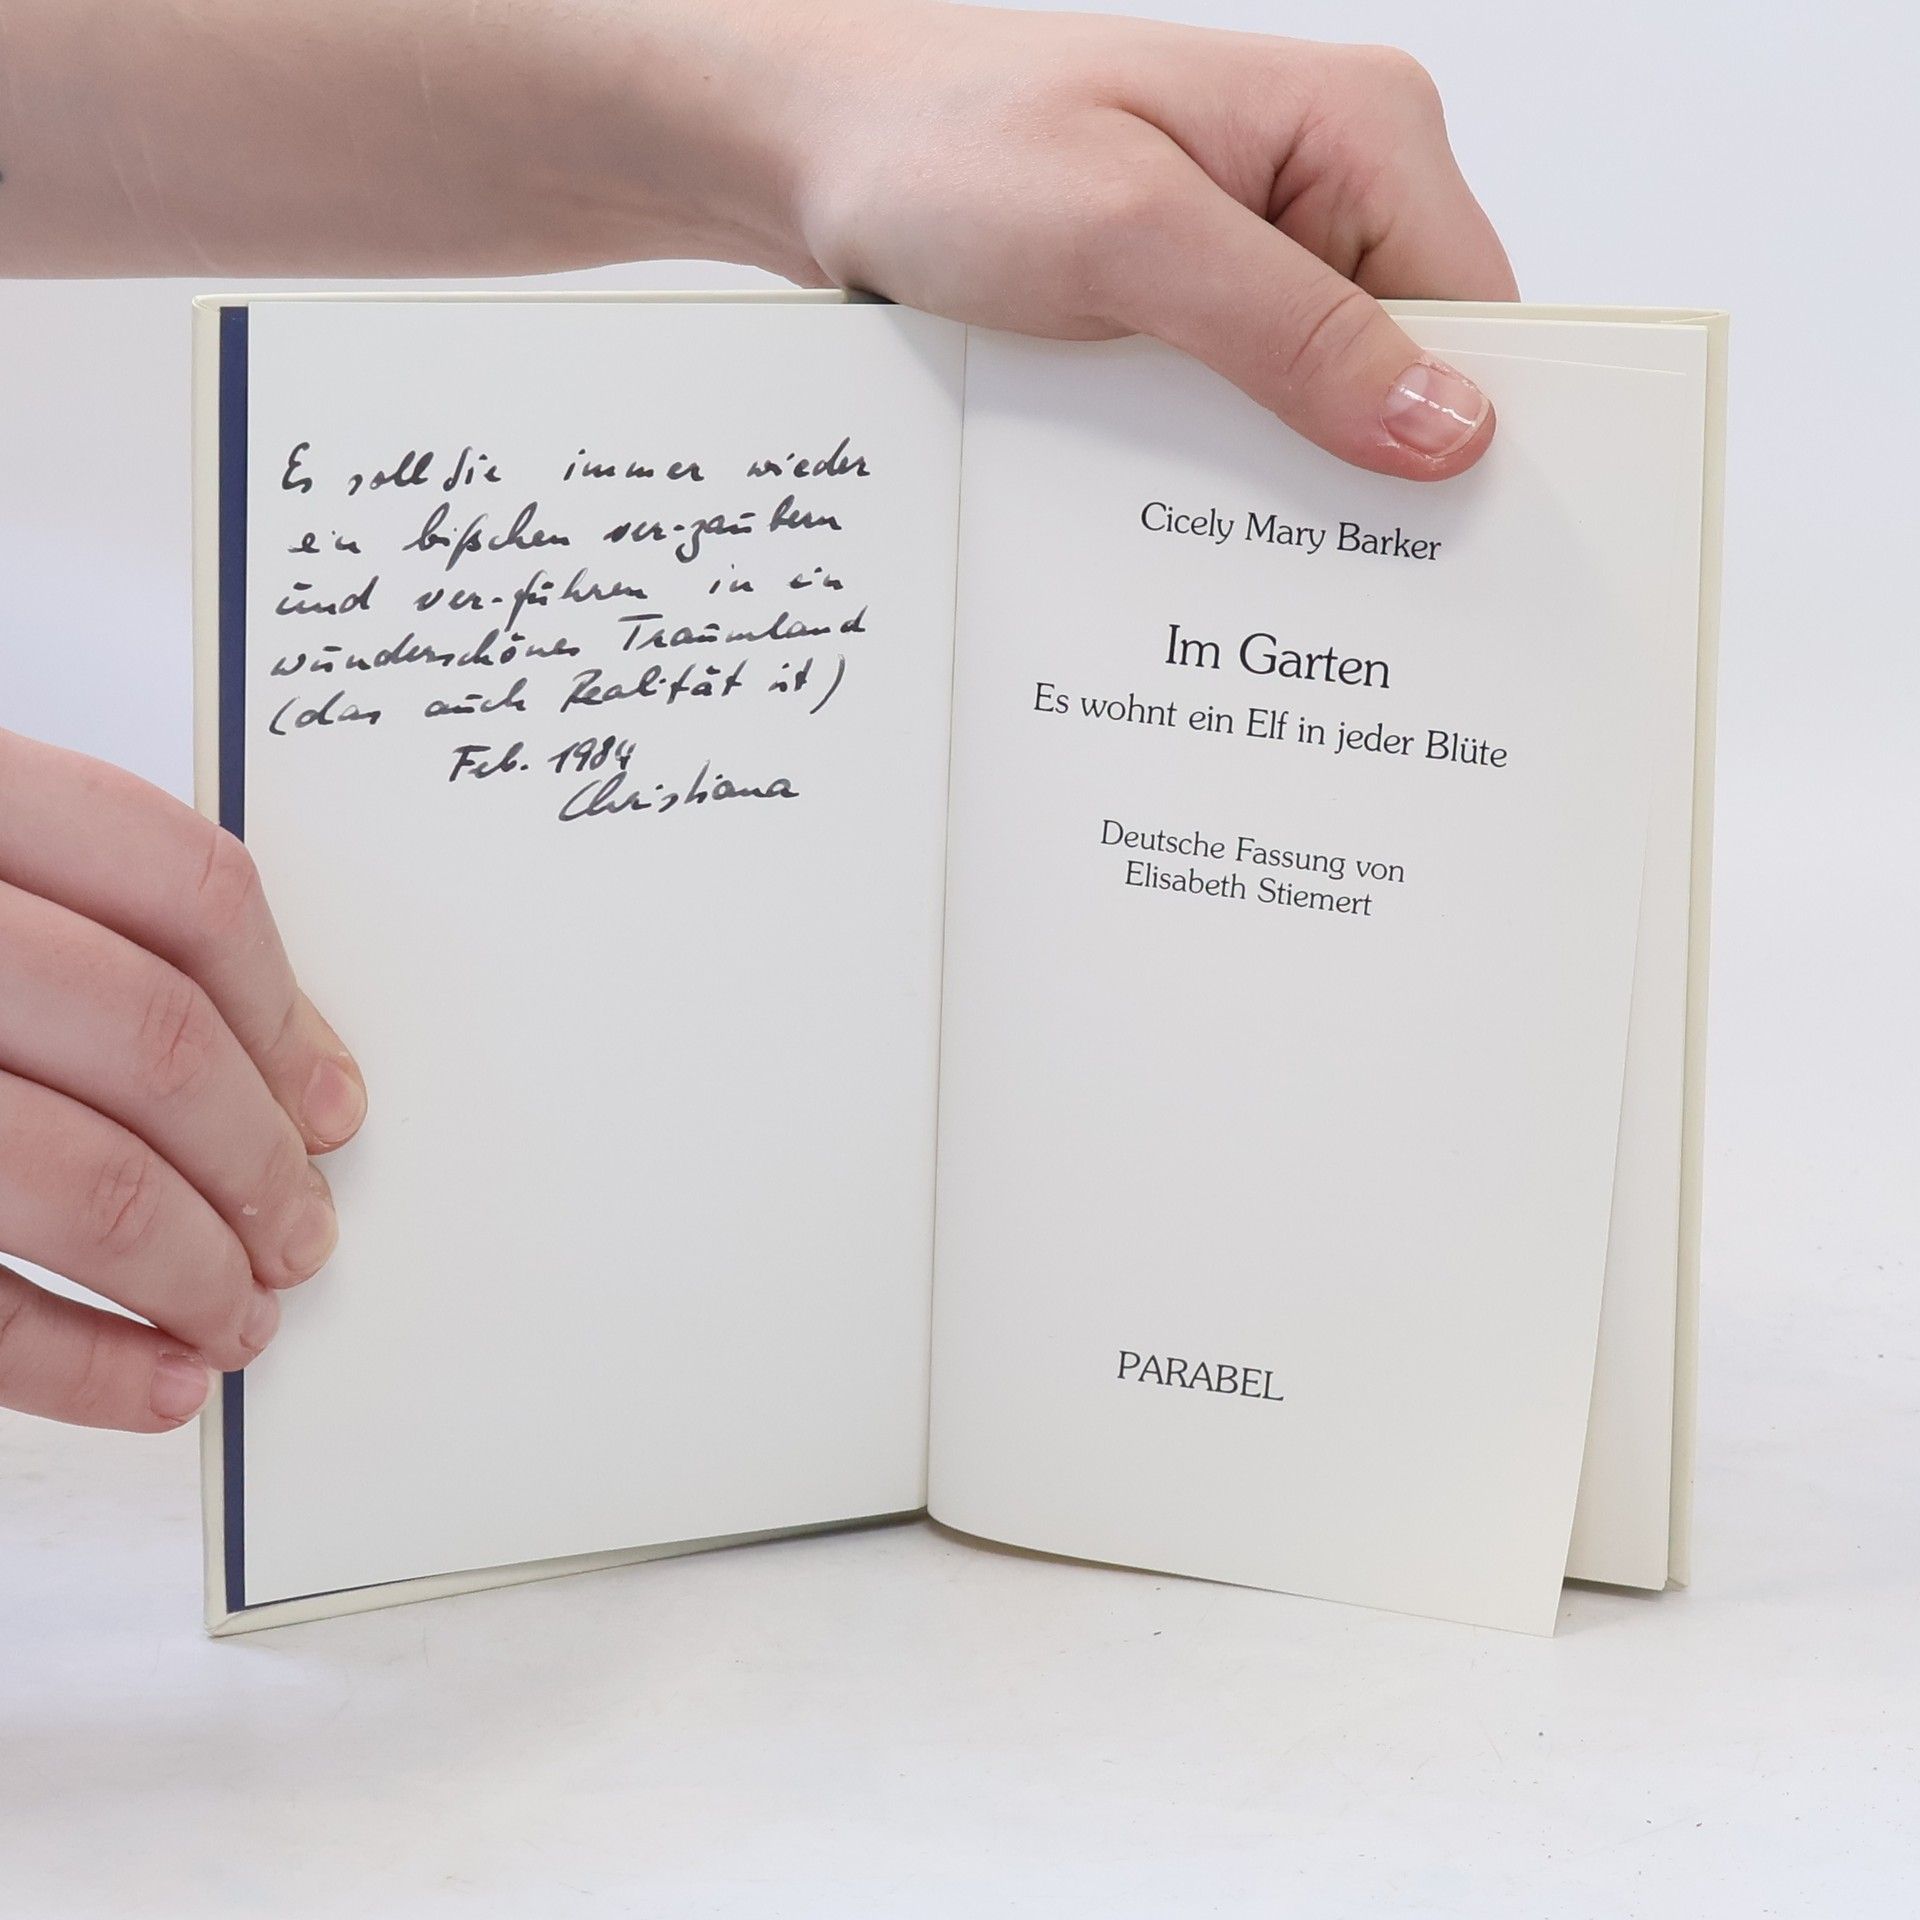 Es soll Sie immer wieder
ein bißchen ver-zaubern
und ver-führen in ein
wunderschönes Traumland
(das auch Realität ist)
Feb. 1984
Christiana
Cicely Mary Barker
Im Garten
Es wohnt ein Elf in jeder Blüte
Deutsche Fassung von
Elisabeth Stiemert
PARABEL